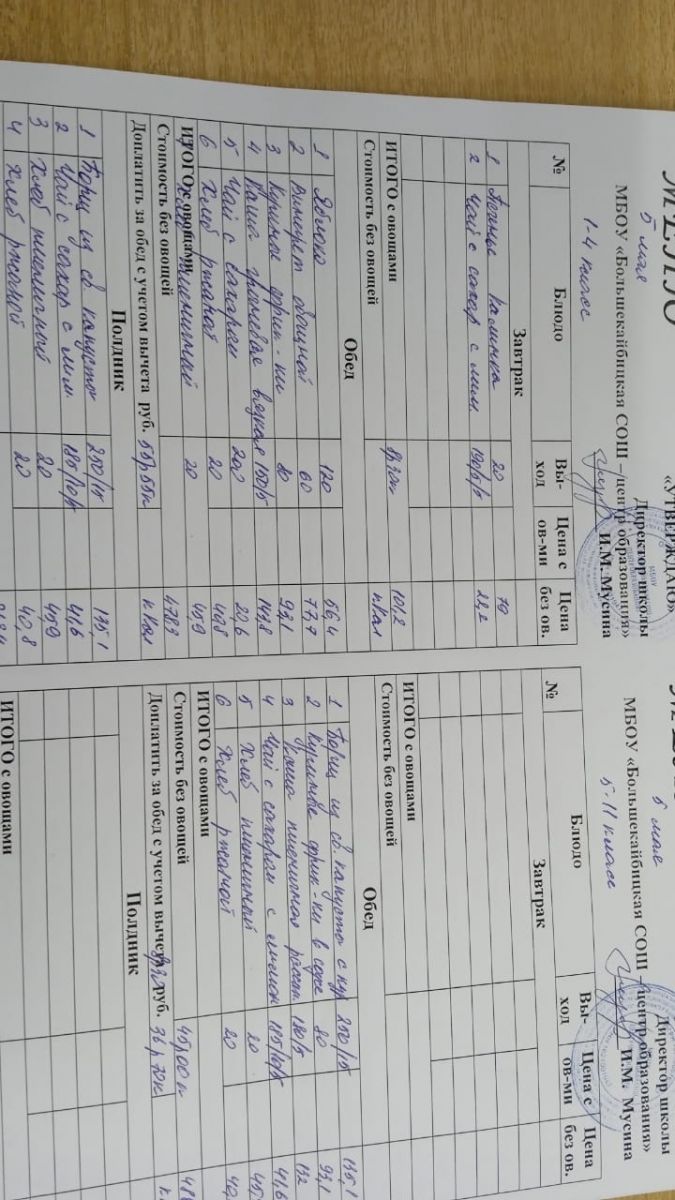 МЕНЮ
5 мая
МБОУ «Большекайбицкая СОШ – центр образования»
1-4 класс
«УТВЕРЖДАЮ»
Директор школы
И.М. Мусина
№ Блюдо Вы-ход Цена с ов-ми Цена без ов.
Завтрак
1 20 79
2 Чай с сахар с лим 190/5/5 22,2
ИТОГО с овощами 101,2
Стоимость без овощей кКал
Обед
1 Яблоко 120 56,4
2 Винегрет овощной 60 77,7
3 Куриные фрик-ки 80 93,1
4 Каша гречневая вязкая 150/5 143,8
5 Чай с сахаром 200 20,6
6 Хлеб ржаной 20 40,8
ИТОГО с овощами
7 Хлеб пшеничный 20 45,9
Стоимость без овощей 478,3
Доплатить за обед с учетом вычета руб. кКал
Полдник
1 Борщ из св капусты 250/15 135,1
2 Чай с сахар с лим 185/10/5 41,6
3 Хлеб пшеничный 20 45,9
4 Хлеб ржаной 20 40,8
5 мая
МБОУ «Большекайбицкая СОШ – центр образования»
5-11 класс
Директор школы
И.М. Мусина
№ Блюдо Вы-ход Цена с ов-ми Цена без ов.
Завтрак
ИТОГО с овощами
Стоимость без овощей
Обед
1 Борщ из св капусты с кур 250/15 135,1
2 Куриные фрик-ки в соусе 80 93,1
3 Каша пшеничная рассып 180/5 132
4 Чай с сахаром с лимон 185/10/5 41,6
5 Хлеб пшеничный 20 45,
6 Хлеб ржаной 20 40,
ИТОГО с овощами
Стоимость без овощей 45р00к
Доплатить за обед с учетом вычета руб. 36р70к
Полдник
ИТОГО с овощами